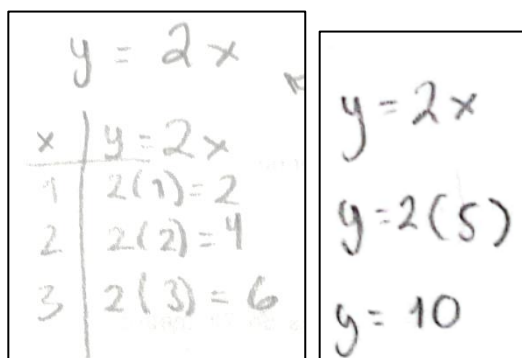 y = 2x
x | y = 2x
1 | 2(1) = 2
2 | 2(2) = 4
3 | 2(3) = 6
y = 2x
y = 2(5)
y = 10